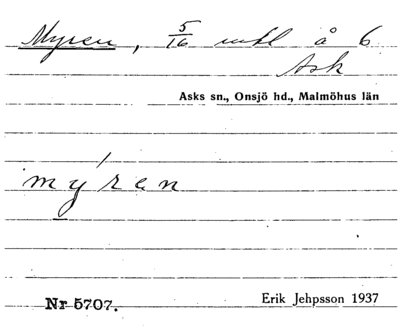 Myren, 5/16 mtl å 6
Ask
Asks sn., Onsjö hd., Malmöhus län
mýren
Nr 5707.
Erik Jehpsson 1937